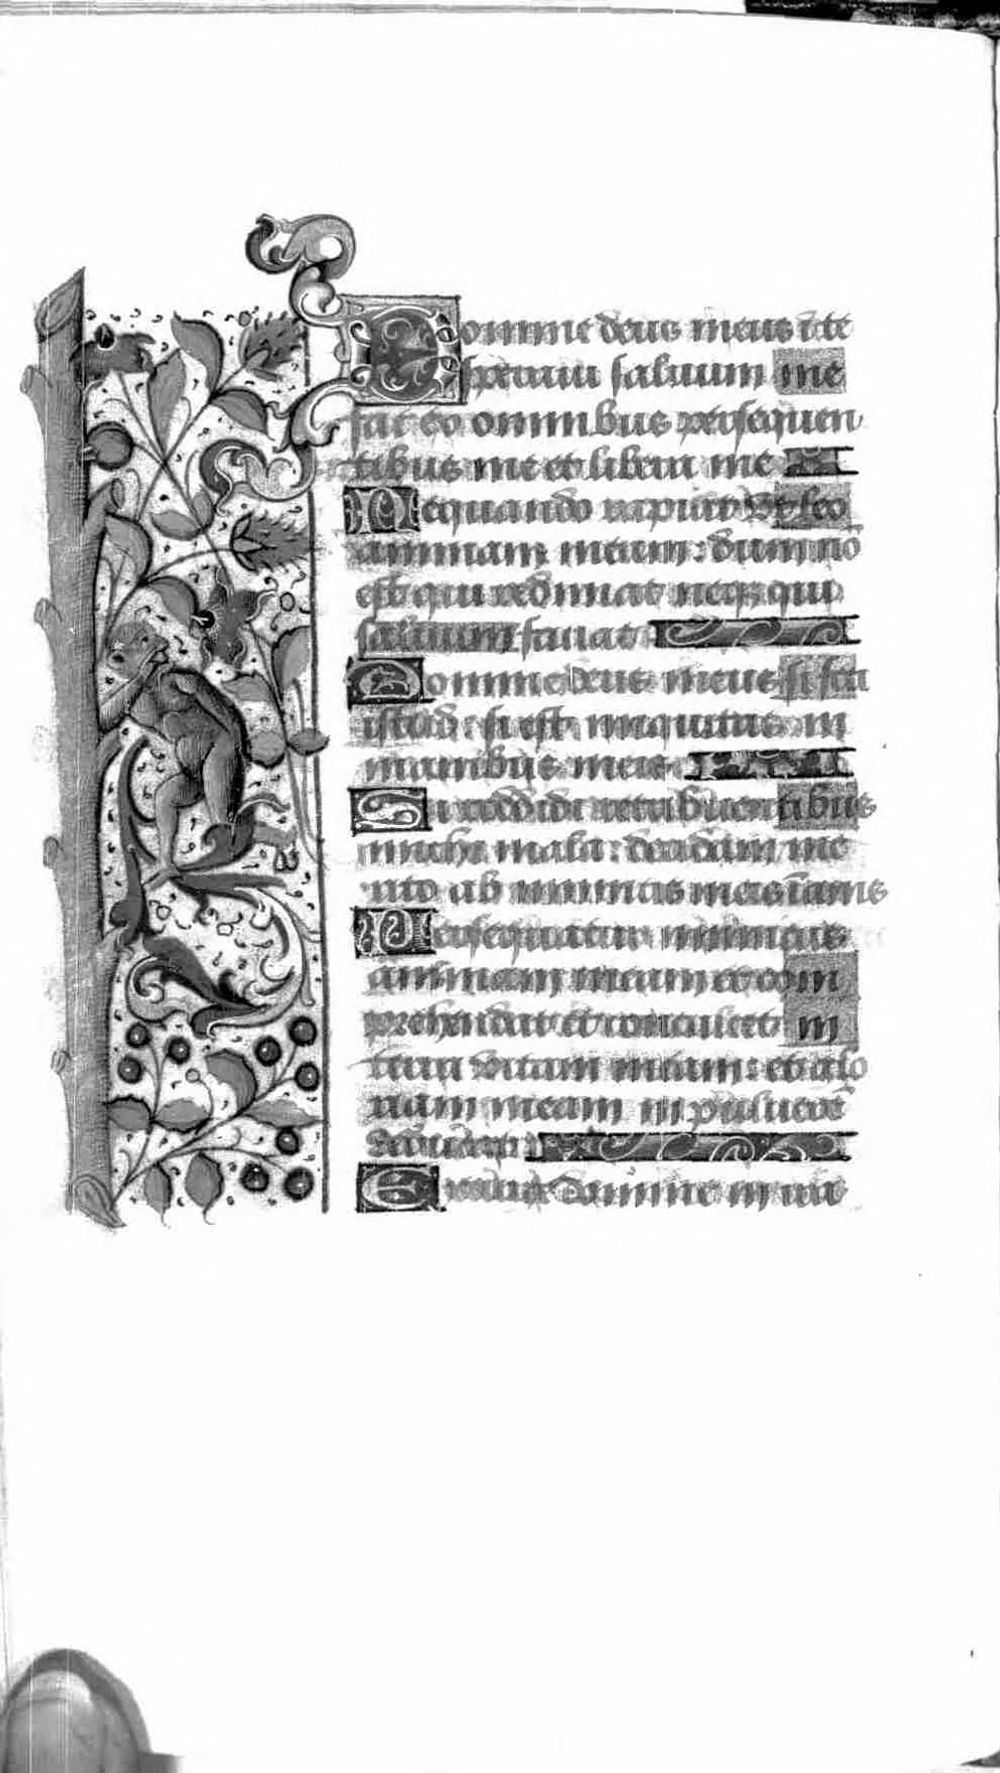 Domine deus meus i te
speraui saluum me
fac ex omnibus persequen
tibus me et libera me
Nequando rapiat vt leo
animam meam: dum nō
est qui redimat neqz qui
saluum faciat
Domine deus meus si feci
istud: si est iniquitas in
manibus meis
Si reddidi retribuentibus
michi mala: decidam me
rito ab inimicis meis īanis
Persequatur inimicus
animam meam et com
prehendat et conculcet in
terra vitam meam: et glo
riam meam in puluerē
deducat
Exurge domine in ira